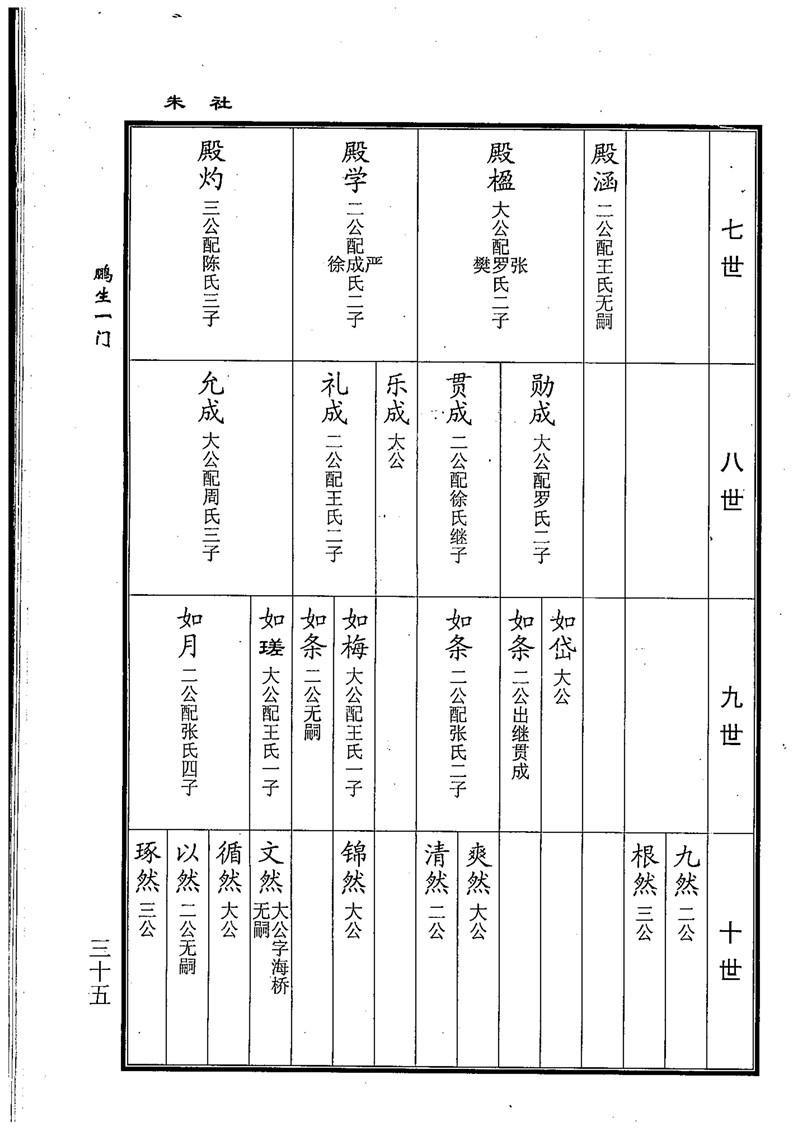 朱社
鹏生一门
七世
殿涵 二公配王氏无嗣
殿楹 大公配张罗樊氏二子
殿学 二公配严成徐氏二子
殿灼 三公配陈氏三子
八世
勋成 大公配罗氏二子
贯成 二公配徐氏继子
乐成 大公
礼成 二公配王氏二子
允成 大公配周氏三子
九世
如岱 大公
如条 二公出继贯成
如条 二公配张氏二子
如梅 大公配王氏一子
如条 二公无嗣
如瑳 大公配王氏一子
如月 二公配张氏四子
十世
九然 二公
根然 三公
爽然 大公
清然 二公
锦然 大公
文然 大公字海桥无嗣
循然 大公
以然 二公无嗣
琢然 三公
三十五